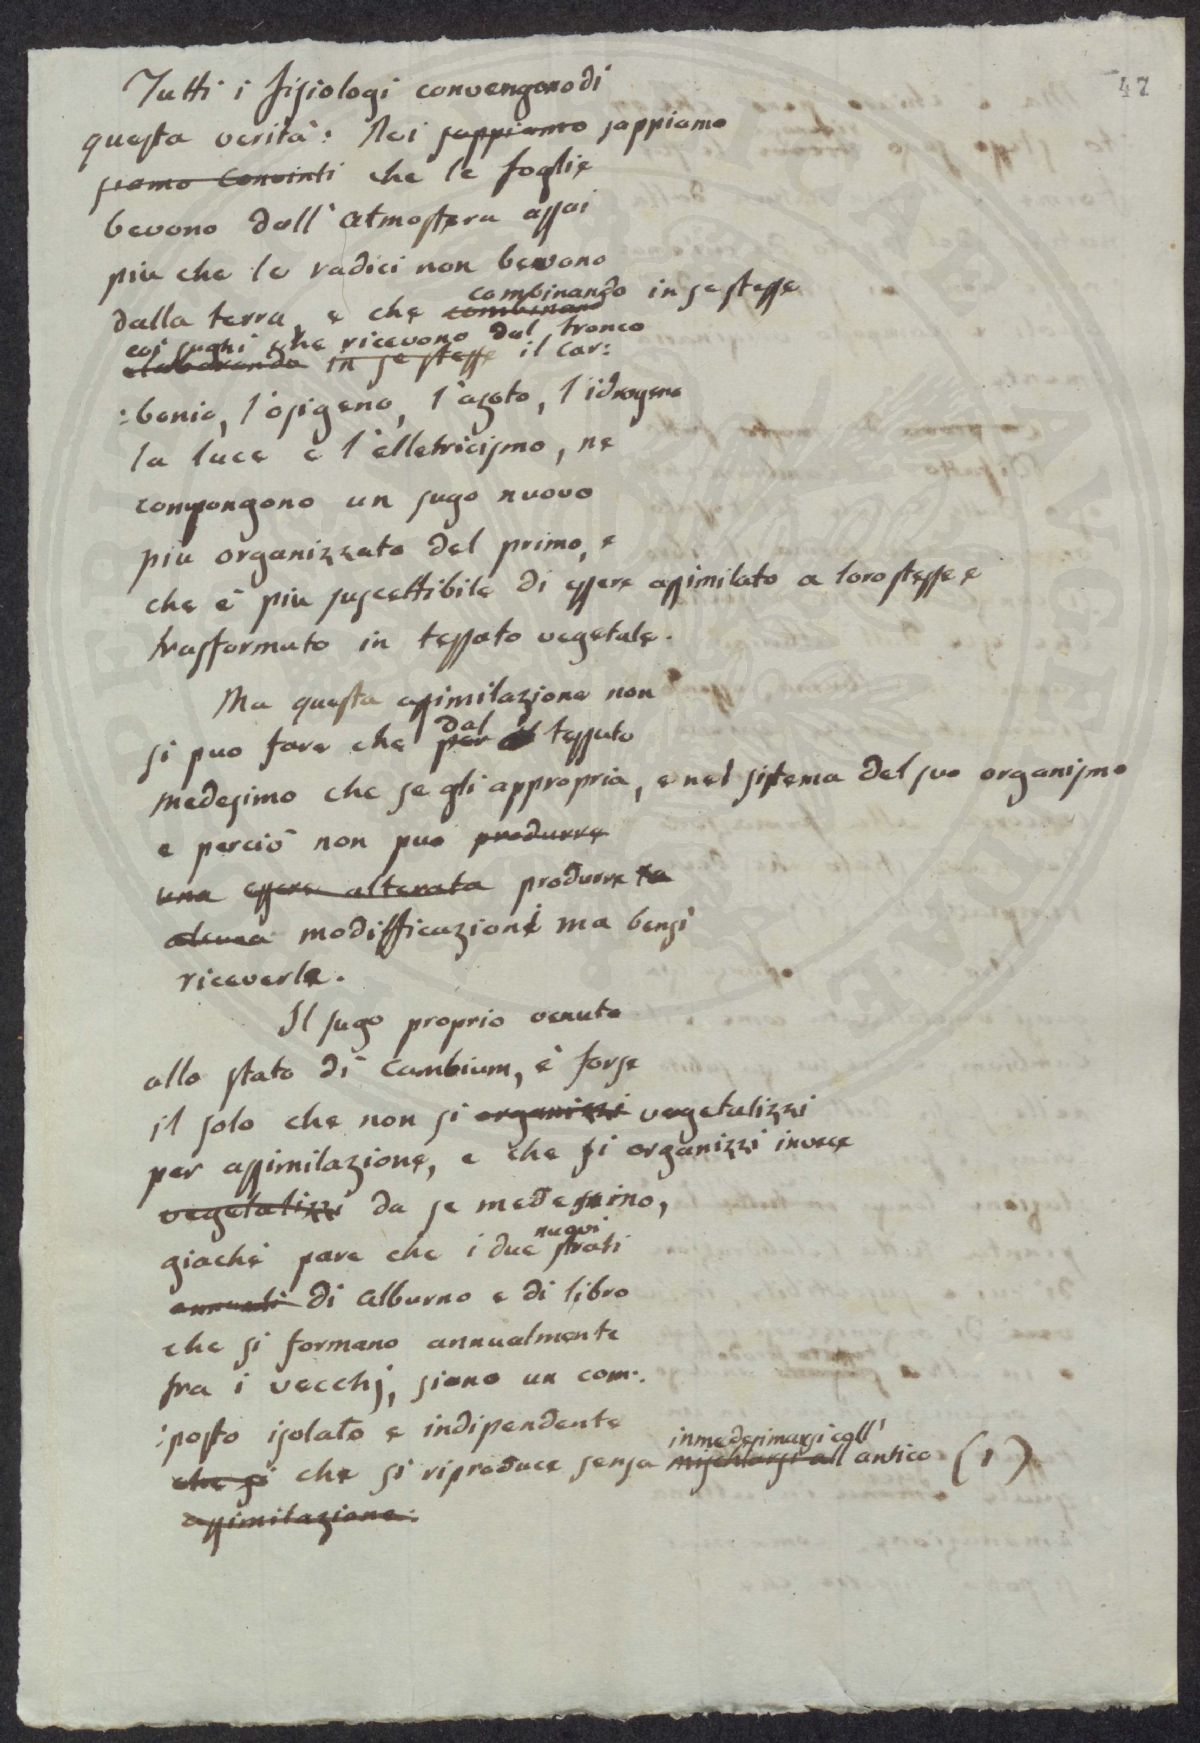 47
Tutti i fisiologi convengono di
questa verità: Noi sappiamo sappiamo
siamo convinti che le foglie
bevono dall'atmosfera assai
piu che le radici non bevono
combinando in se stesse
dalla terra, e che combinano
coi sughi che ricevono dal tronco
elaborando in se stesse il car:
:bonio, l'osigeno, l'azoto, l'idrogeno
la luce e l'elletricismo, ne
compongono un sugo nuovo
piu organizzato del primo, e
che è piu suscettibile di essere assimilato a loro stesse e
trasformato in tessuto vegetale.
Ma questa assimilazione non
dal
si puo fare che per il tessuto
medesimo che se gli appropria, e nel sistema del suo organismo
e perciò non puo produrre
una essere alterata produrre
alcuna modifficazioni ma bensì
riceverle.
Il sugo proprio venuto
allo stato di cambium, è forse
il solo che non si organizzi vegetalizzi
per assimilazione, e che si organizzi invece
vegetalizzi da se medesimo,
nuovi
giachè pare che i due strati
annuali di alburno e di libro
che si formano annualmente
fra i vecchj, siano un com:
:posto isolato e indipendente
inmedesimarsi coll'
che si che si riproduce senza mischiarsi all antico (1)
assimilazione.